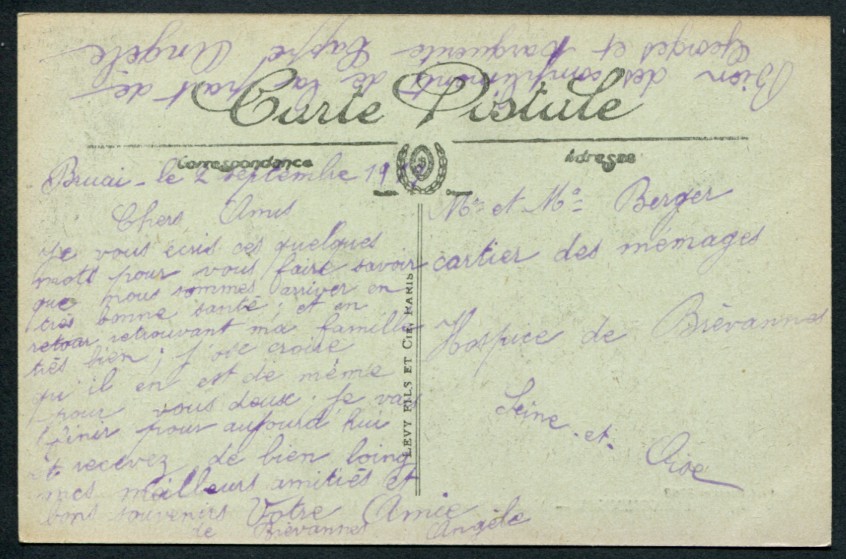 Bien des compliments de la part de
Georges et Marguerite Angèle
Carte Postale
Correspondance
Adresse
Bruai - le 2 septembre 19
Chers Amis
Je vous écris ces quelques
mots pour vous faire savoir
que nous sommes arriver en
très bonne santé; et en
retour retrouvant ma famille
très bien; j'ose croire
qu'il en est de même
pour vous deux. Je vais
finir pour aujourd'hui
et recevez de bien loing
mes meilleurs amitiés et
bons souvenirs Votre Amie
de Brévannes Angèle
LEVY FILS ET CIE, PARIS
Mr et Me Berger
cartier des mémages
Hospice de Brèvannes
Seine - et -
Oise